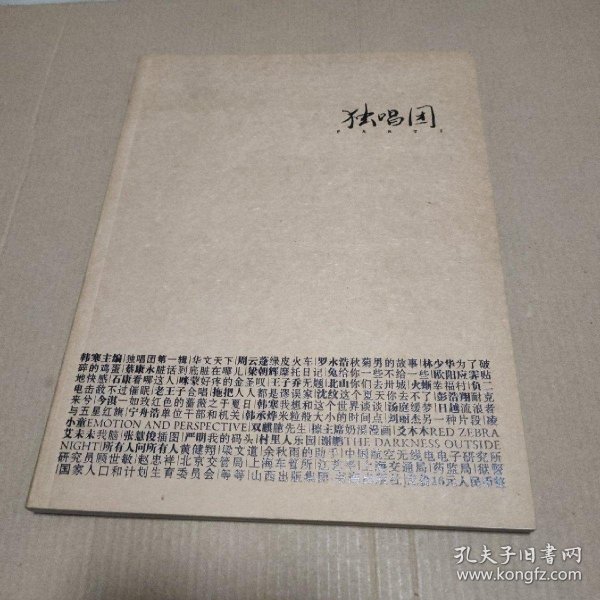 独唱团
PART 1
韩寒主编|独唱团第一辑|华文天下|周云蓬绿皮火车|罗永浩秋菊男的故事|林少华为了破
碎的鸡蛋|蔡康永脏话到底脏在哪儿|梁朝辉摩托日记|兔你一些不给一些|欧阳应霁贴
地快感|石康看哪这人|咪蒙好疼的金圣叹|王子乔无题|北山你们去卅城|火蜥幸福村|负二
电击敌不过催眠|老王子合唱|拖把人人都是误家|沈纹给这个夏天你去不了|彭浩翔耐克
来兮|今淇一如玫红色的蔷薇之于夏日|韩寒我想和这个世界谈谈|汤庭缓梦|日越流浪者
与五星红旗|宁丹浩单位干部和机关|韩承烨米粒般大小的时间点|刘瑜杰另一种片段|凌
小童EMOTION AND PERSPECTIVE|双麒胧先生|檬主席奶浪漫画|支木木RED ZEBRA
艾未未我脑|张慧俊插图|严明我的码头|村里人乐园|谢鹏THE DARKNESS OUTSIDE
NIGHT|所有人问所有人黄健翔|梁文道|余秋雨的助手|中国航空无线电电子研究所
研究员顾世敏|赵忠祥|北京交管局|上海车管所|上海交通局|药监局|狱警
国家人口和计划生育委员会|等等|山西出版集团
孔夫子旧书网
www.kongfz.com